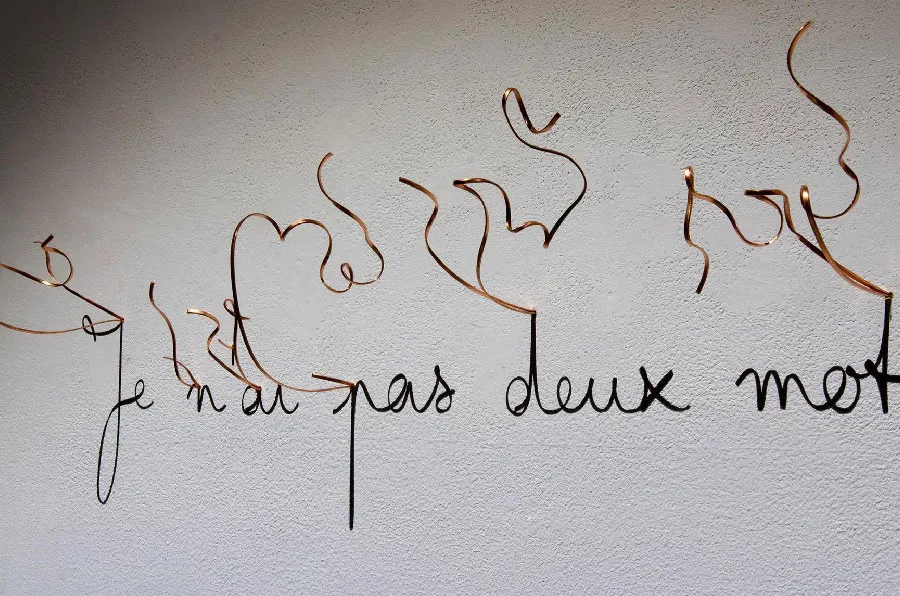 je n'ai pas deux mot